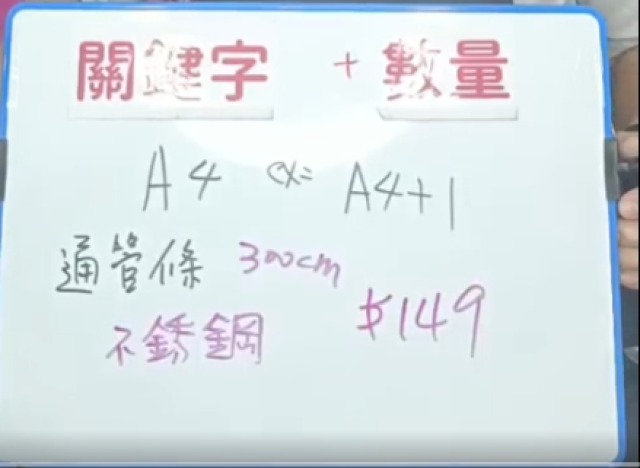 關鍵字 + 數量
A4 ex= A4+1
通管條 300cm
不銹鋼 $149